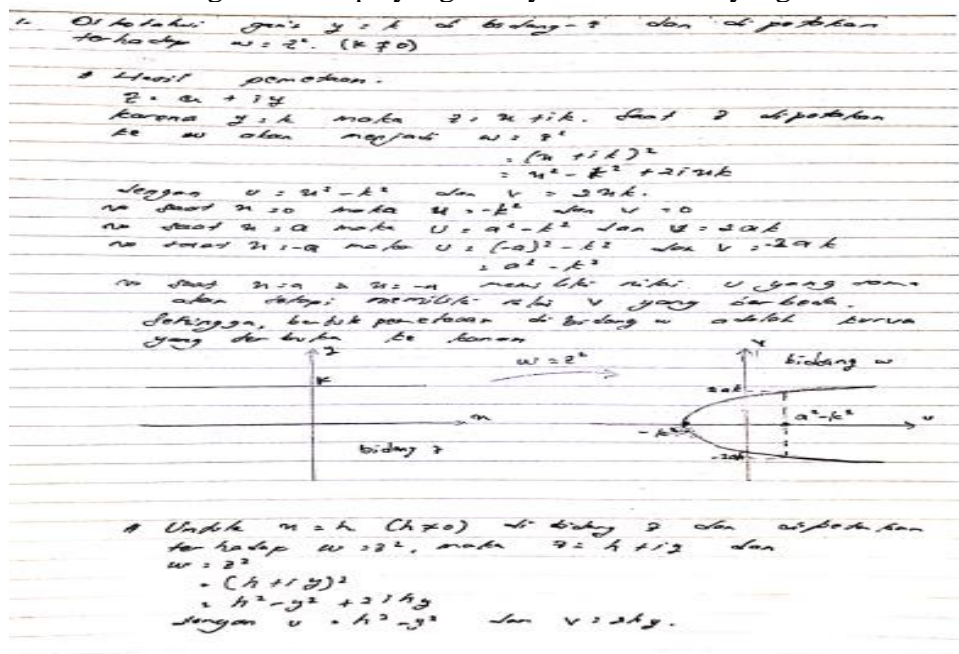 1. Diketahui garis y = k di bidang-z dan dipetakan
terhadap w = z². (k ≠ 0)
* Hasil pemetaan.
z = x + iy
karena y = k maka z = x + ik. Saat z dipetakan
ke w akan menjadi w = z²
= (x + ik)²
= x² - k² + 2ixk
dengan u = x² - k² dan v = 2xk.
~ saat x = 0 maka u = -k² dan v = 0
~ saat x = a maka u = a² - k² dan v = 2ak
~ saat x = -a maka u = (-a)² - k² dan v = -2ak
= a² - k²
~ saat x = a & x = -a memiliki nilai u yang sama
akan tetapi memiliki nilai v yang berbeda.
Sehingga, bentuk pemetaan di bidang w adalah kurva
yang terbuka ke kanan
y w = z² v bidang w
k 2ak
x -k² a²-k² u
bidang z -2ak
* Untuk x = h (h≠0) di bidang z dan dipetakan
terhadap w = z², maka z = h + iy dan
w = z²
= (h + iy)²
= h² - y² + 2ihy
dengan u = h² - y² dan v = 2hy.